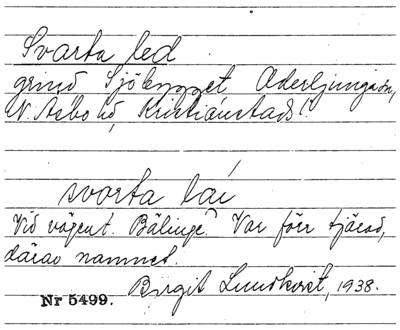 Svarta led
grind Sjöbygget Äderljunga sn,
N. Åsbo hd, Kristianstads l.
svarta láí
Vid vägen t. Bälinge. Var förr tjärad,
därav namnet.
Birgit Lundkvist, 1938.
Nr 5499.